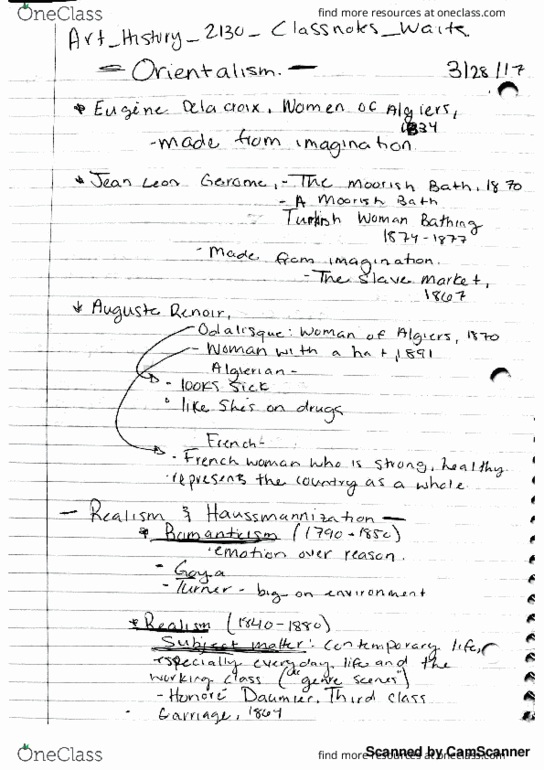 OneClass
find more resources at oneclass.com
Art_History_2130_Classnotes_Waite
find more resources at oneclass.com
- Orientalism. -
3/28/17
* Eugène Delacroix, Women of Algiers,
1834
- made from imagination
* Jean Leon Gerome, - The Moorish Bath, 1870
- A Moorish Bath
Turkish Woman Bathing
1874-1877
- Made from imagination.
- The Slave Market,
1867
* Auguste Renoir,
Odalisque: Woman of Algiers, 1870
- Woman with a hat, 1891
Algierian -
- looks sick
• like she's on drugs
French -
- French woman who is strong, healthy
represents the country as a whole.
- Realism & Haussmannization -
* Romanticism (1790-1850)
• emotion over reason.
- Goya
- Turner - big on environment
* Realism (1840-1880)
Subject matter: contemporary life,
especially everyday life and the
working class ("genre scenes")
- Honoré Daumier, Third class
Carriage, 1864
Scanned by CamScanner
OneClass
find more resources at oneclass.com